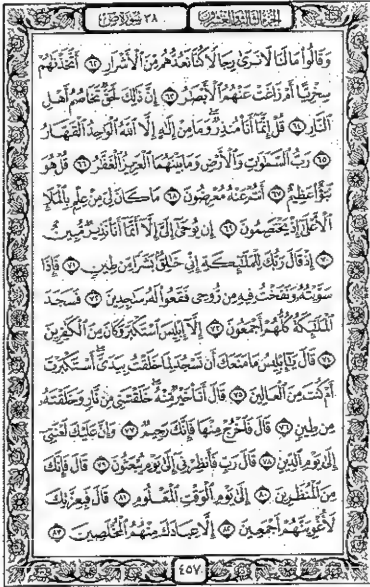 الجزء الثالث والعشرون
٣٨ سورة ص
وَقَالُوا۟ مَا لَنَا لَا نَرَىٰ رِجَالًا كُنَّا نَعُدُّهُم مِّنَ ٱلْأَشْرَارِ ٦٢ أَتَّخَذْنَٰهُمْ
سِخْرِيًّا أَمْ زَاغَتْ عَنْهُمُ ٱلْأَبْصَٰرُ ٦٣ إِنَّ ذَٰلِكَ لَحَقٌّ تَخَاصُمُ أَهْلِ
ٱلنَّارِ ٦٤ قُلْ إِنَّمَآ أَنَا۠ مُنذِرٌ وَمَا مِنْ إِلَٰهٍ إِلَّا ٱللَّهُ ٱلْوَٰحِدُ ٱلْقَهَّارُ
٦٥ رَبُّ ٱلسَّمَٰوَٰتِ وَٱلْأَرْضِ وَمَا بَيْنَهُمَا ٱلْعَزِيزُ ٱلْغَفَّٰرُ ٦٦ قُلْ هُوَ
نَبَؤٌا۟ عَظِيمٌ ٦٧ أَنتُمْ عَنْهُ مُعْرِضُونَ ٦٨ مَا كَانَ لِىَ مِنْ عِلْمٍۭ بِٱلْمَلَإِ
ٱلْأَعْلَىٰٓ إِذْ يَخْتَصِمُونَ ٦٩ إِن يُوحَىٰٓ إِلَىَّ إِلَّآ أَنَّمَآ أَنَا۠ نَذِيرٌ مُّبِينٌ
٧٠ إِذْ قَالَ رَبُّكَ لِلْمَلَٰٓئِكَةِ إِنِّى خَٰلِقٌۢ بَشَرًا مِّن طِينٍ ٧١ فَإِذَا
سَوَّيْتُهُۥ وَنَفَخْتُ فِيهِ مِن رُّوحِى فَقَعُوا۟ لَهُۥ سَٰجِدِينَ ٧٢ فَسَجَدَ
ٱلْمَلَٰٓئِكَةُ كُلُّهُمْ أَجْمَعُونَ ٧٣ إِلَّآ إِبْلِيسَ ٱسْتَكْبَرَ وَكَانَ مِنَ ٱلْكَٰفِرِينَ
٧٤ قَالَ يَٰٓإِبْلِيسُ مَا مَنَعَكَ أَن تَسْجُدَ لِمَا خَلَقْتُ بِيَدَىَّ أَسْتَكْبَرْتَ
أَمْ كُنتَ مِنَ ٱلْعَالِينَ ٧٥ قَالَ أَنَا۠ خَيْرٌ مِّنْهُ خَلَقْتَنِى مِن نَّارٍ وَخَلَقْتَهُۥ
مِن طِينٍ ٧٦ قَالَ فَٱخْرُجْ مِنْهَا فَإِنَّكَ رَجِيمٌ ٧٧ وَإِنَّ عَلَيْكَ لَعْنَتِىٓ
إِلَىٰ يَوْمِ ٱلدِّينِ ٧٨ قَالَ رَبِّ فَأَنظِرْنِىٓ إِلَىٰ يَوْمِ يُبْعَثُونَ ٧٩ قَالَ فَإِنَّكَ
مِنَ ٱلْمُنظَرِينَ ٨٠ إِلَىٰ يَوْمِ ٱلْوَقْتِ ٱلْمَعْلُومِ ٨١ قَالَ فَبِعِزَّتِكَ
لَأُغْوِيَنَّهُمْ أَجْمَعِينَ ٨٢ إِلَّا عِبَادَكَ مِنْهُمُ ٱلْمُخْلَصِينَ ٨٣
٤٥٧